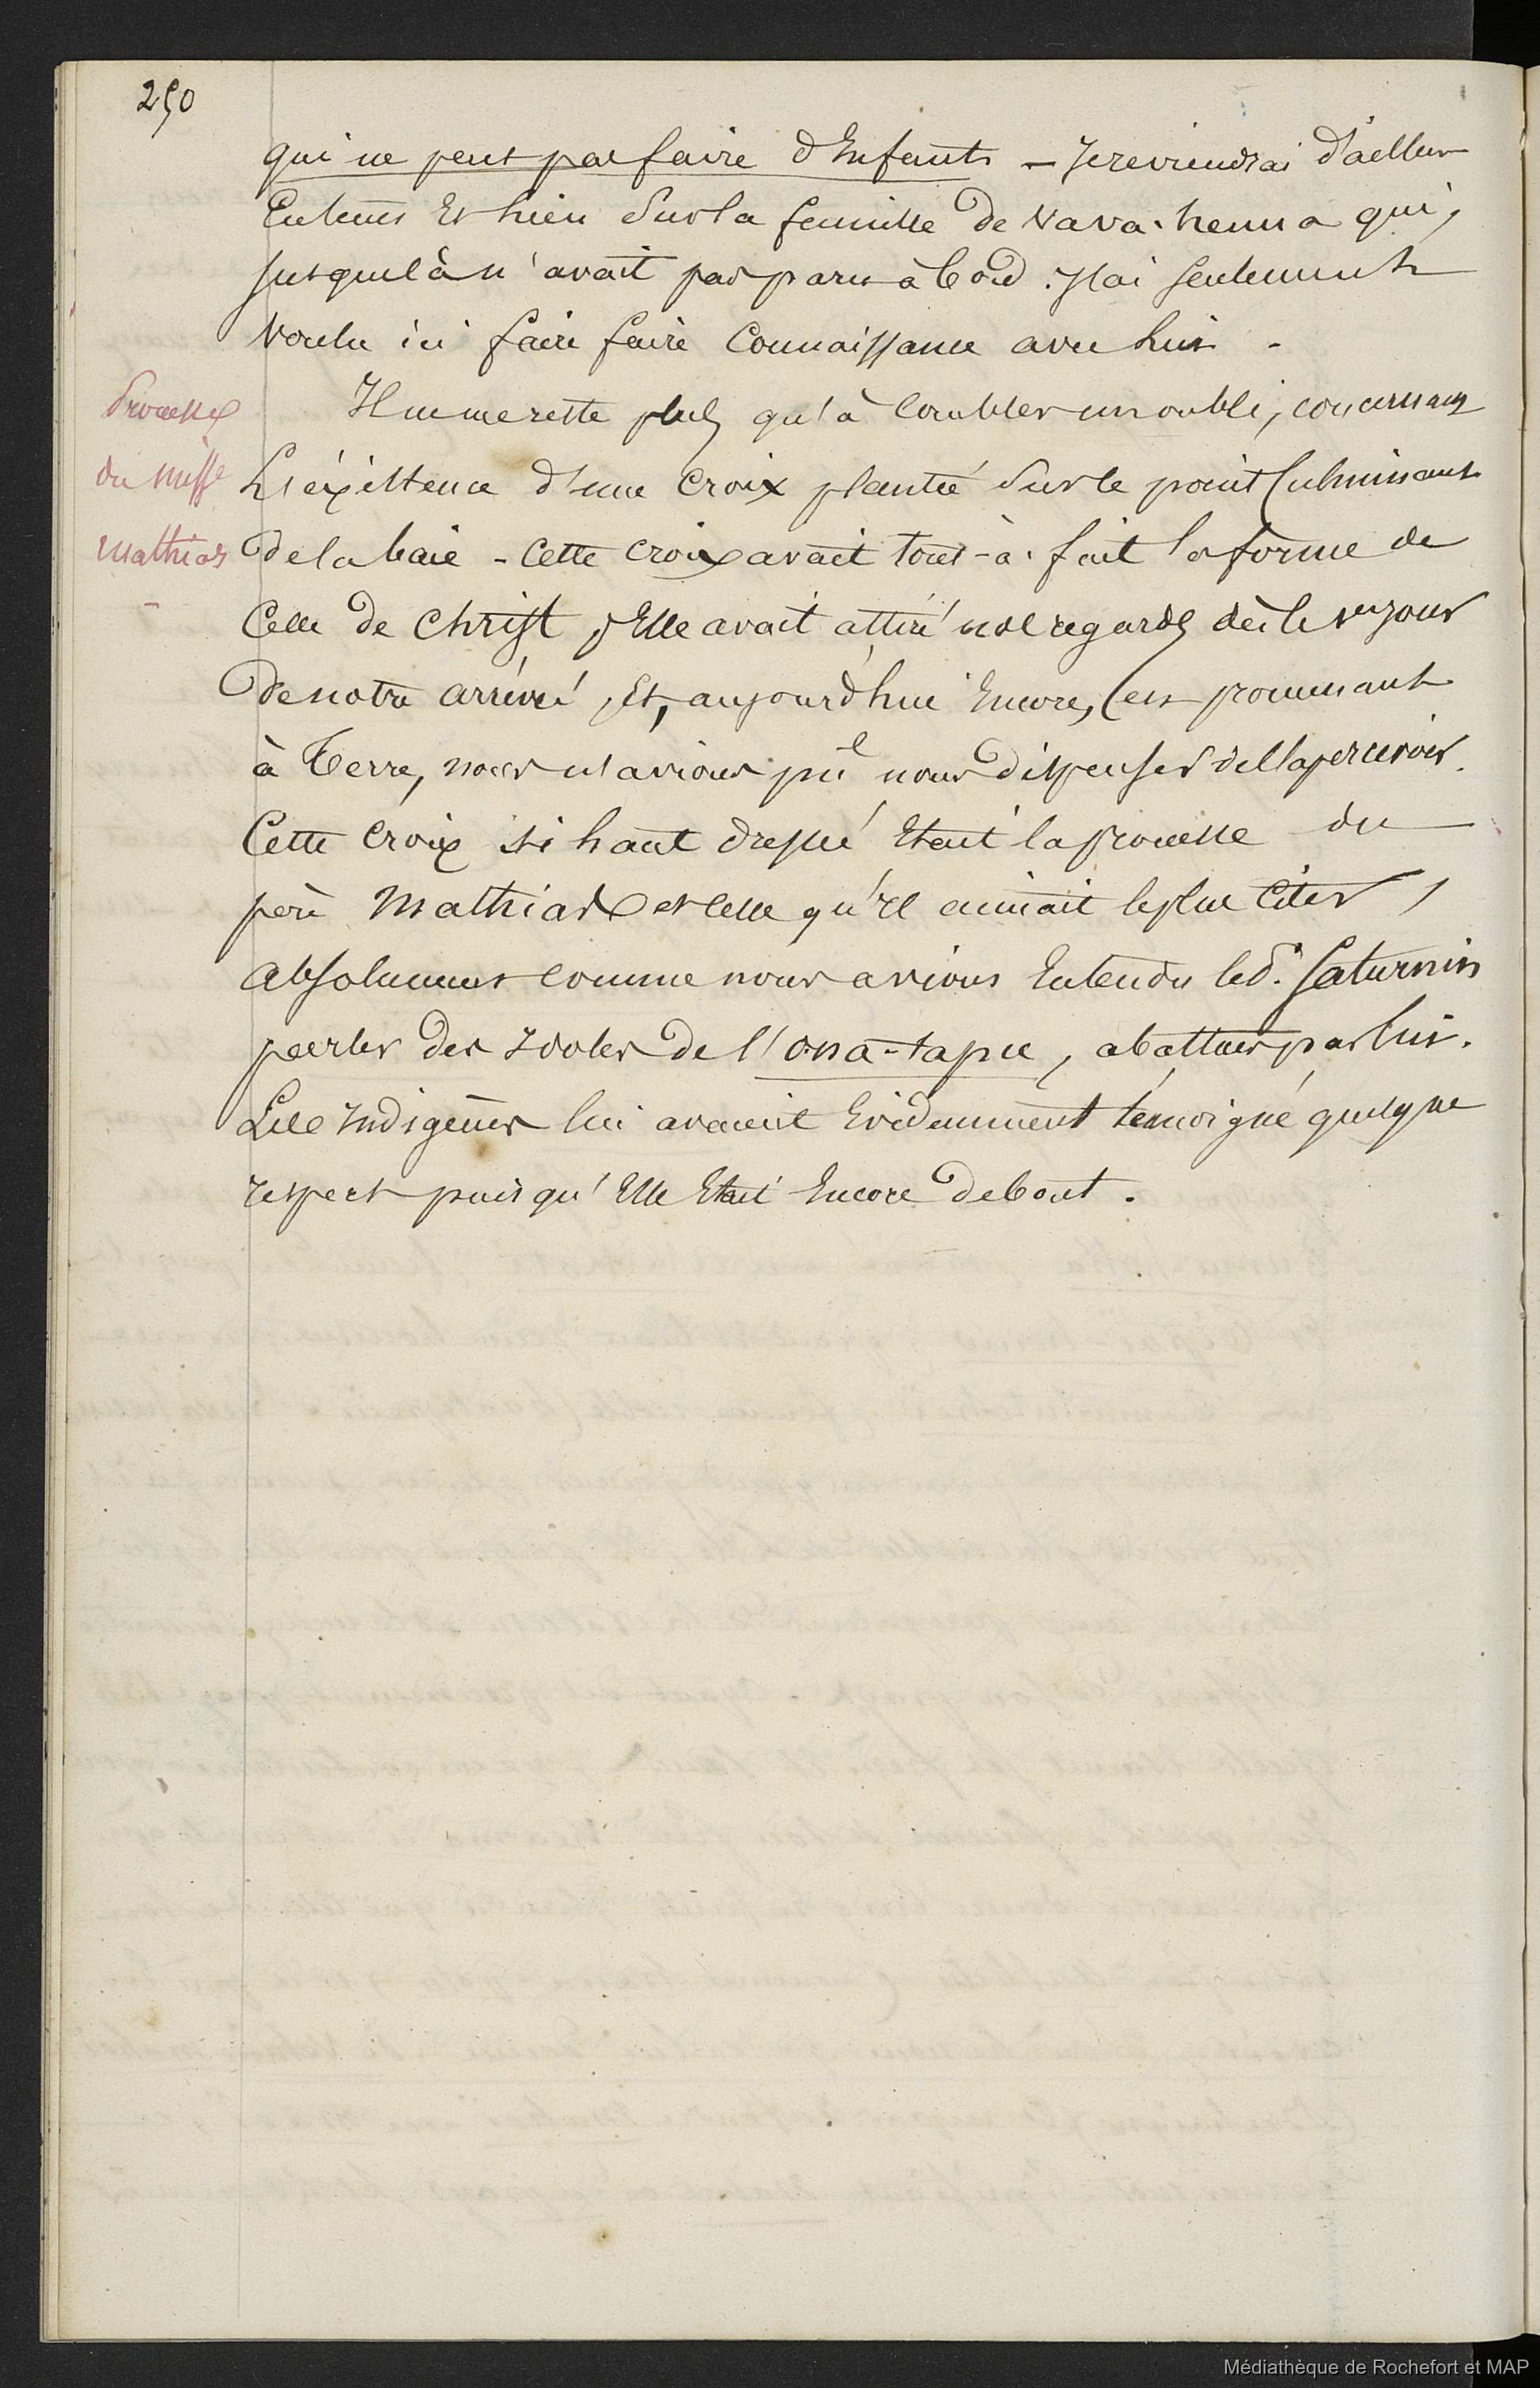 250
qui ne peut pas faire d'Enfants — Je reviendrai d'ailleurs
Entems Et lieu sur la famille de Vava-henua qui,
jusque là n'avait pas paru à bord. J'ai seulement
voulu ici faire faire connaissance avec lui -
Prouesses
du Miss^re
Mathias
-
Il ne me reste plus qu'à combler un oubli, concernant
L'éxistence d'une Croix plantée sur le point Culminant
de la baie - Cette Croix avait tout-à-fait la forme de
Celle de Christ, Elle avait attiré nos regards dès le 1er jour
de notre arrivée, Et, aujourd'hui Encore, (en promenant
à Terre, nous n'avions pu nous dispenser de l'apercevoir.
Cette Croix si haut dressée Etait la prouesse du
père Mathias et celle qu'Il aimait le plus Citer,
absolument comme nous avions Entendu le d. Saturnin
parler des Idoles de l'ona-tapu, abattues par lui.
Les Indigènes lui avaient Evidemment témoigné quelque
respect puisqu'Elle Etait Encore debout.
Médiathèque de Rochefort et MAP